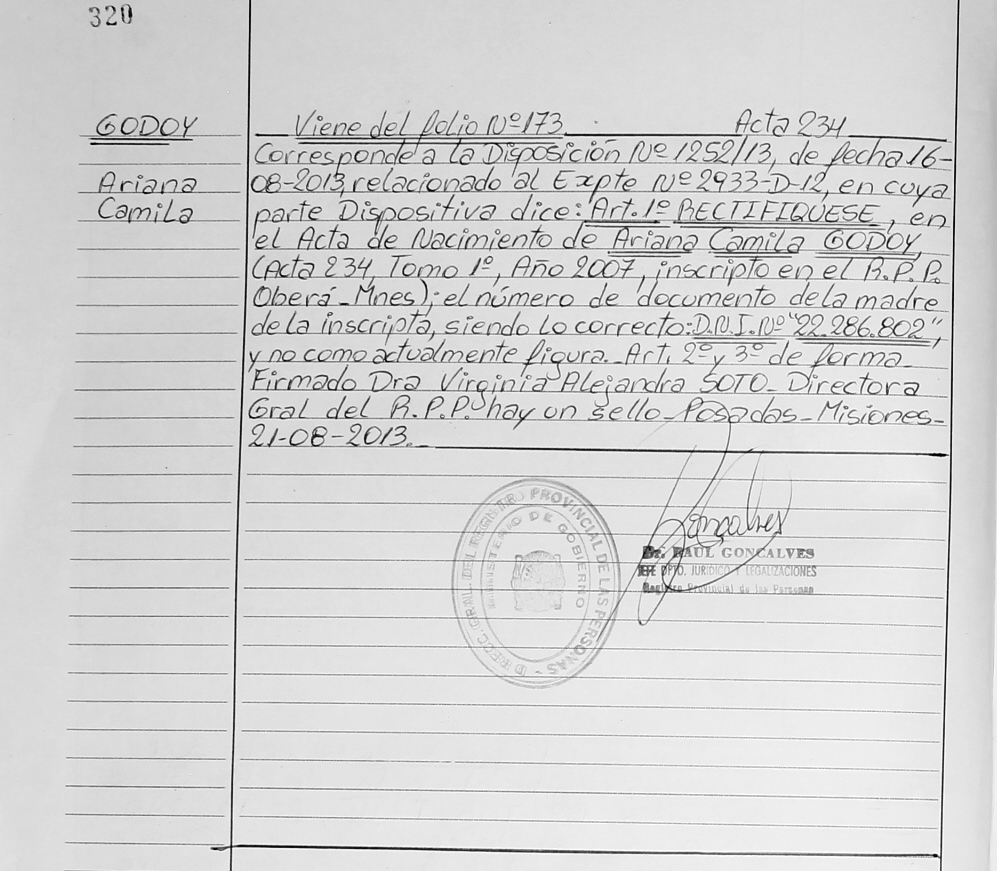 320
GODOY
Ariana
Camila
Viene del folio Nº 173. Acta 234
Corresponde a la Disposición Nº 1252/13, de fecha 16-
08-2013, relacionado al Expte Nº 2933-D-12, en cuya
parte Dispositiva dice: Art. 1º RECTIFIQUESE, en
el Acta de Nacimiento de Ariana Camila GODOY,
(Acta 234, Tomo 1º, Año 2007, inscripto en el R.P.P.
Oberá-Mnes); el número de documento de la madre
de la inscripta, siendo lo correcto: D.N.I. Nº "22.286.802",
y no como actualmente figura. Art. 2º y 3º de forma-
Firmado Dra Virginia Alejandra SOTO- Directora
Gral del R.P.P. hay un sello- Posadas- Misiones-
21-08-2013.
DIREC. GRAL. DEL REGISTRO PROVINCIAL DE LAS PERSONAS -
MINISTERIO DE GOBIERNO
Goncalves
Dr. RAUL GONCALVES
JEFE DPTO. JURIDICO Y LEGALIZACIONES
Registro Provincial de las Personas